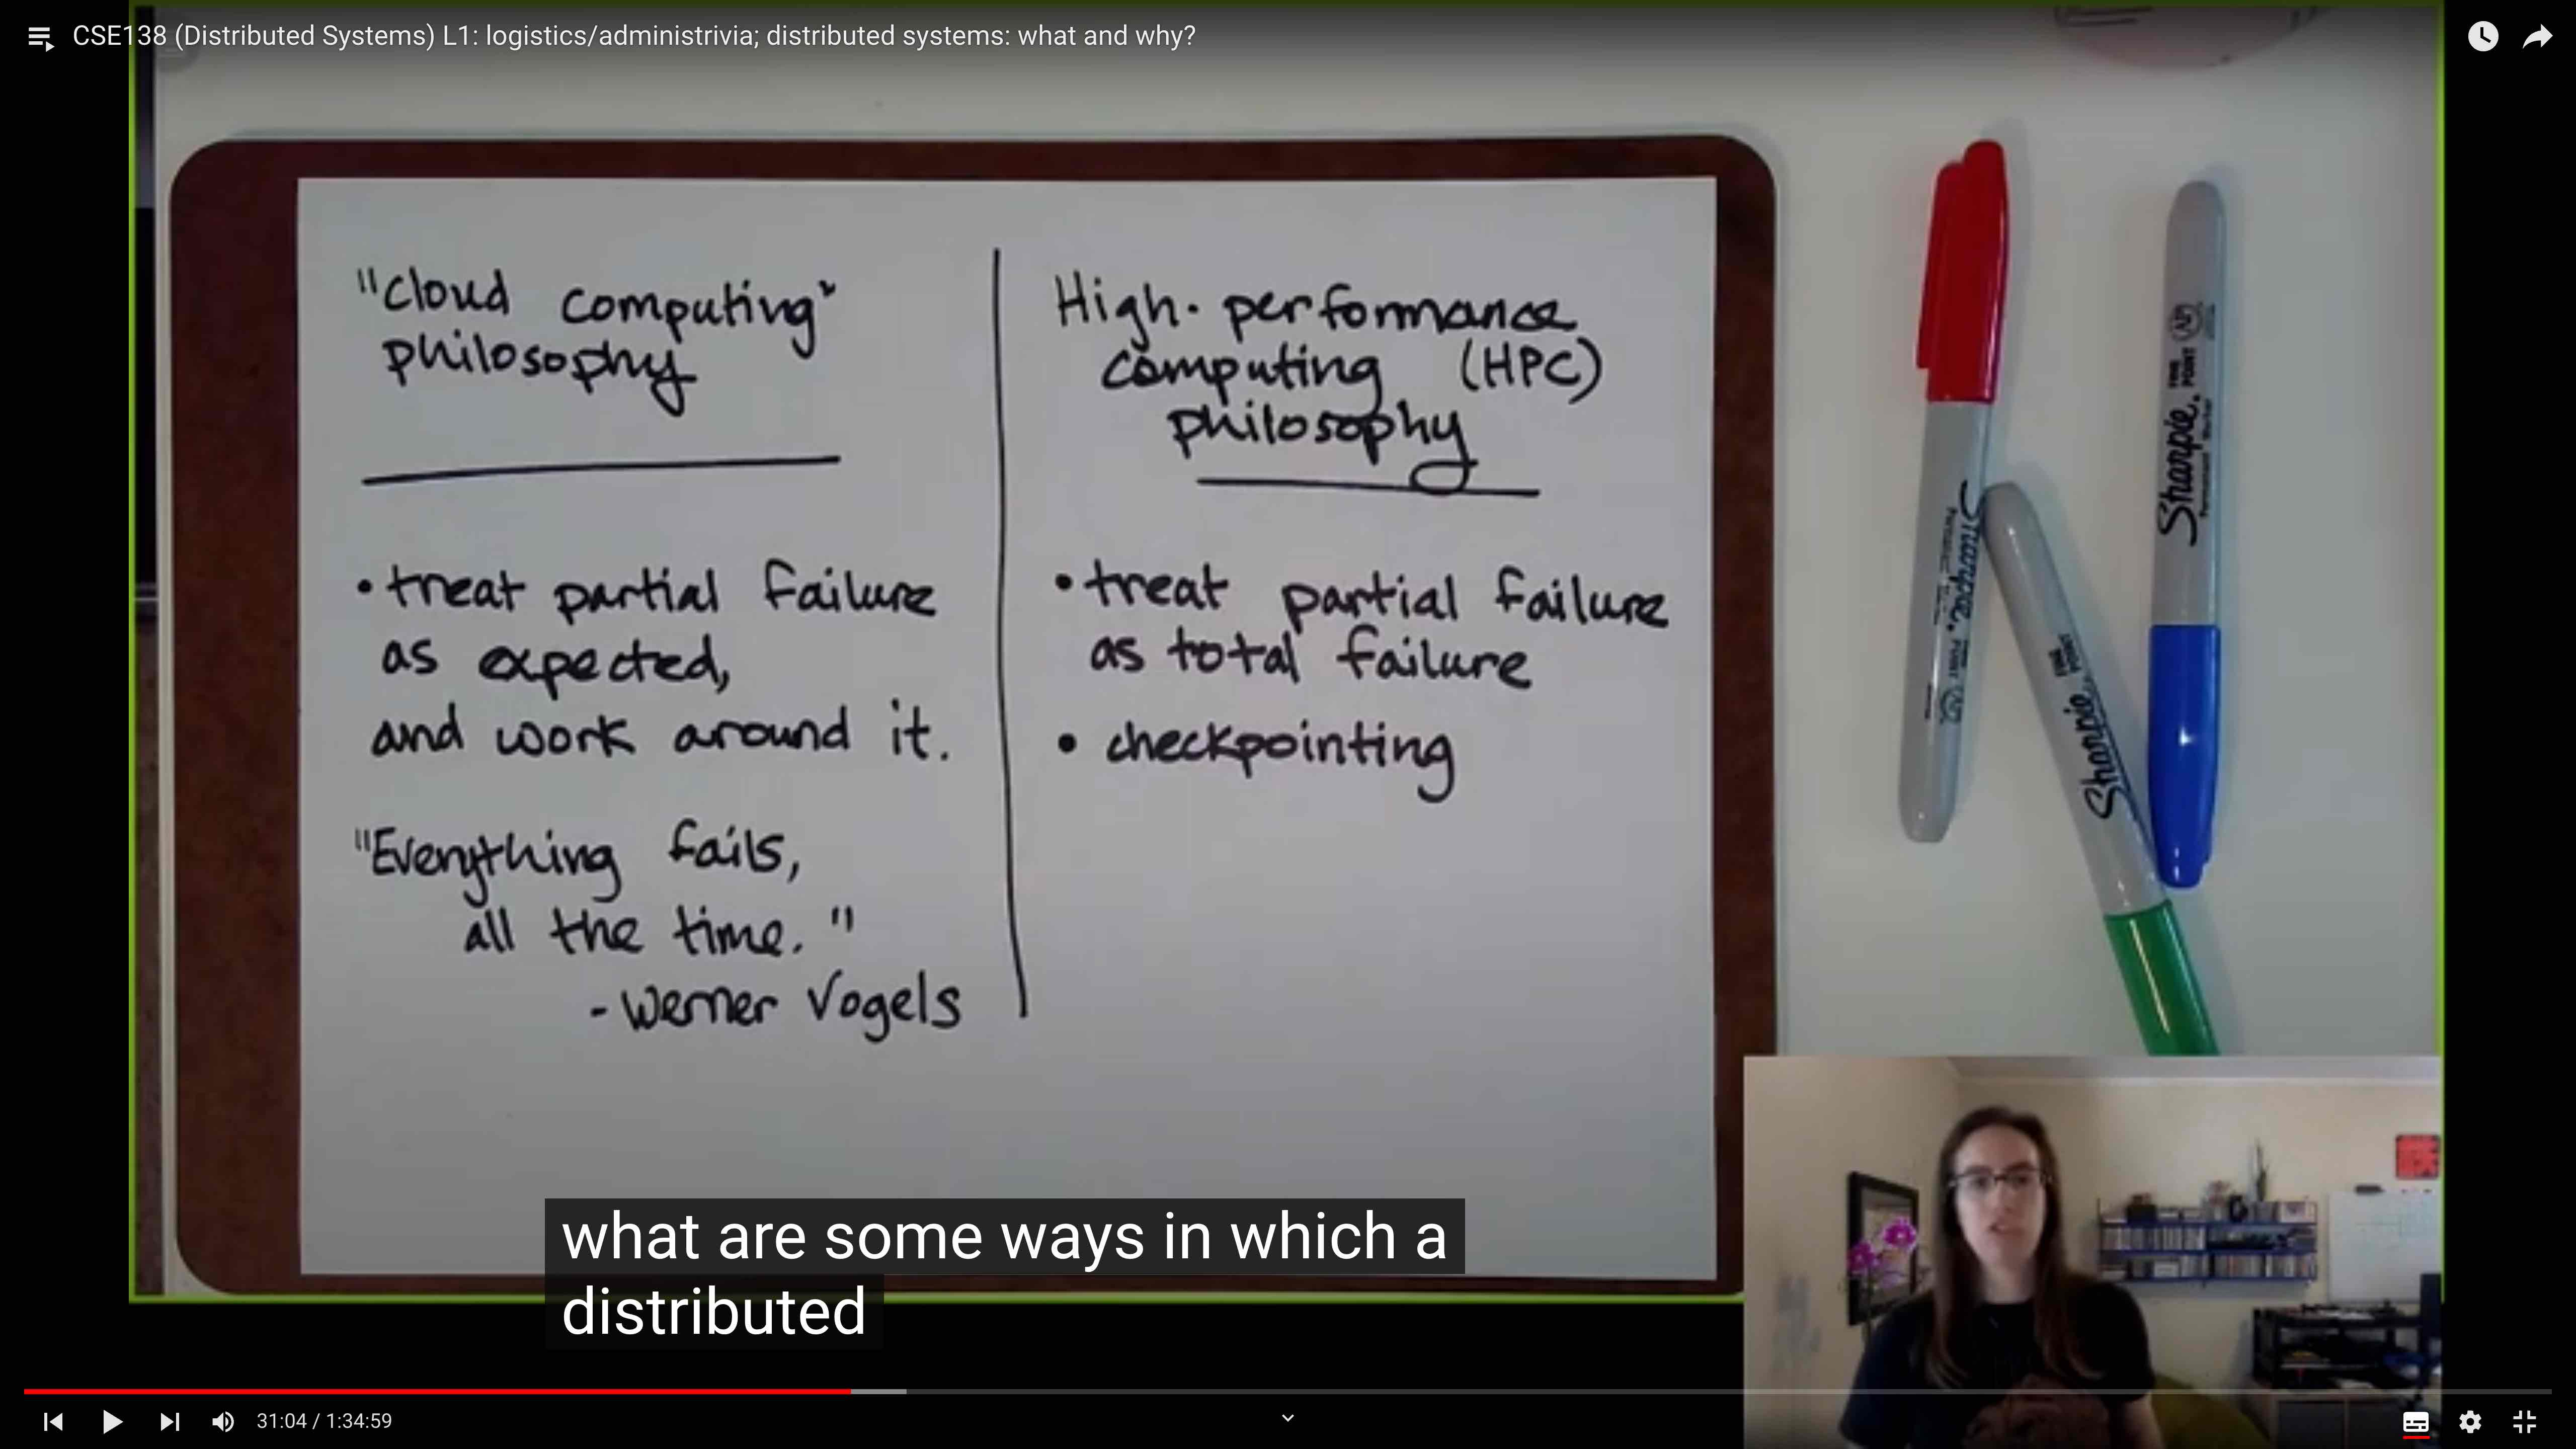 CSE138 (Distributed Systems) L1: logistics/administrivia; distributed systems: what and why?
"Cloud computing"
philosophy
• treat partial failure
as expected,
and work around it.
"Everything fails,
all the time."
- Werner Vogels
High-performance
computing (HPC)
philosophy
• treat partial failure
as total failure
• checkpointing
Sharpie.
FINE POINT
Sharpie.
FINE POINT
Permanent Marker
Sharpie.
FINE POINT
what are some ways in which a
distributed
31:04 / 1:34:59